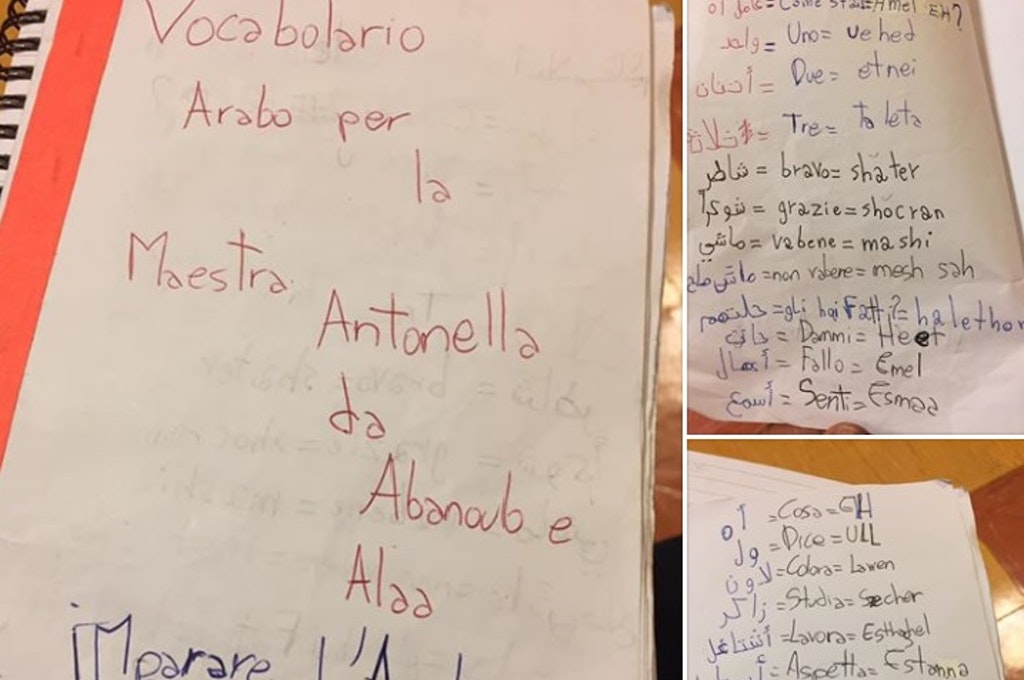 Vocabolario
Arabo per
la
Maestra
Antonella
da
Abanoub e
Alaa
iMparare l'A
عامل اه = Come stai = Amel EH?
واحد = Uno = vehed
أتنان = Due = etnei
تلاتة = Tre = Taleta
شاطر = bravo = shater
شوكرآ = grazie = shocran
ماشي = vabene = mashi
ماش صاح = non vabene = mesh sah
حلتهم = gli hai Fatti? = halethom
هات = Dammi = Heet
أعمال = Fallo = Emel
أسمع = Senti = Esmaa
أه = Cosa = EH
ول = Dice = ULL
لاون = Colora = Lawen
زاكر = Studia = Secher
أشتاغل = Lavora = Esthaghel
= Aspetta = Estanna